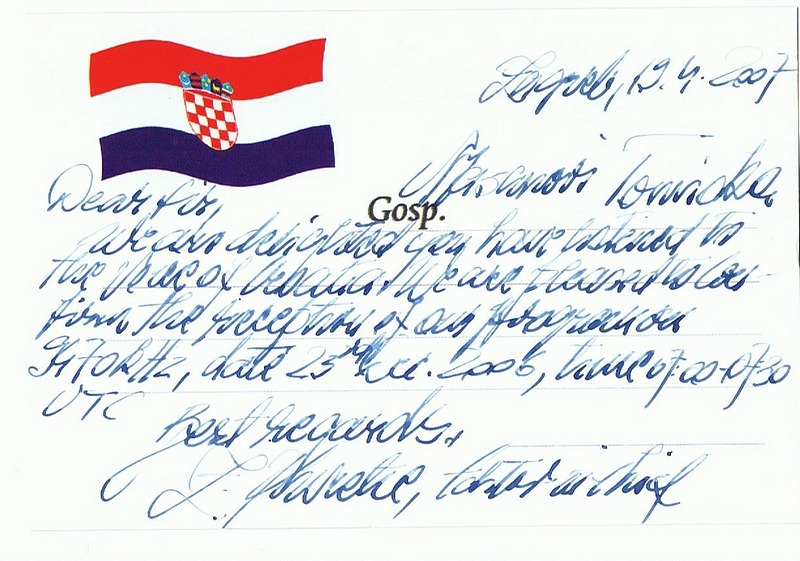 Zagreb, 19.4.2007
Tomioka
Dear Sir,
Gosp.
We are delighted you have listened to
the Voice of Croatia. We are pleased to con-
firm the reception of our program on
9470 kHz, date 23rd Dec. 2006, time 07:00-07:30
UTC
Best regards,
editor in chief